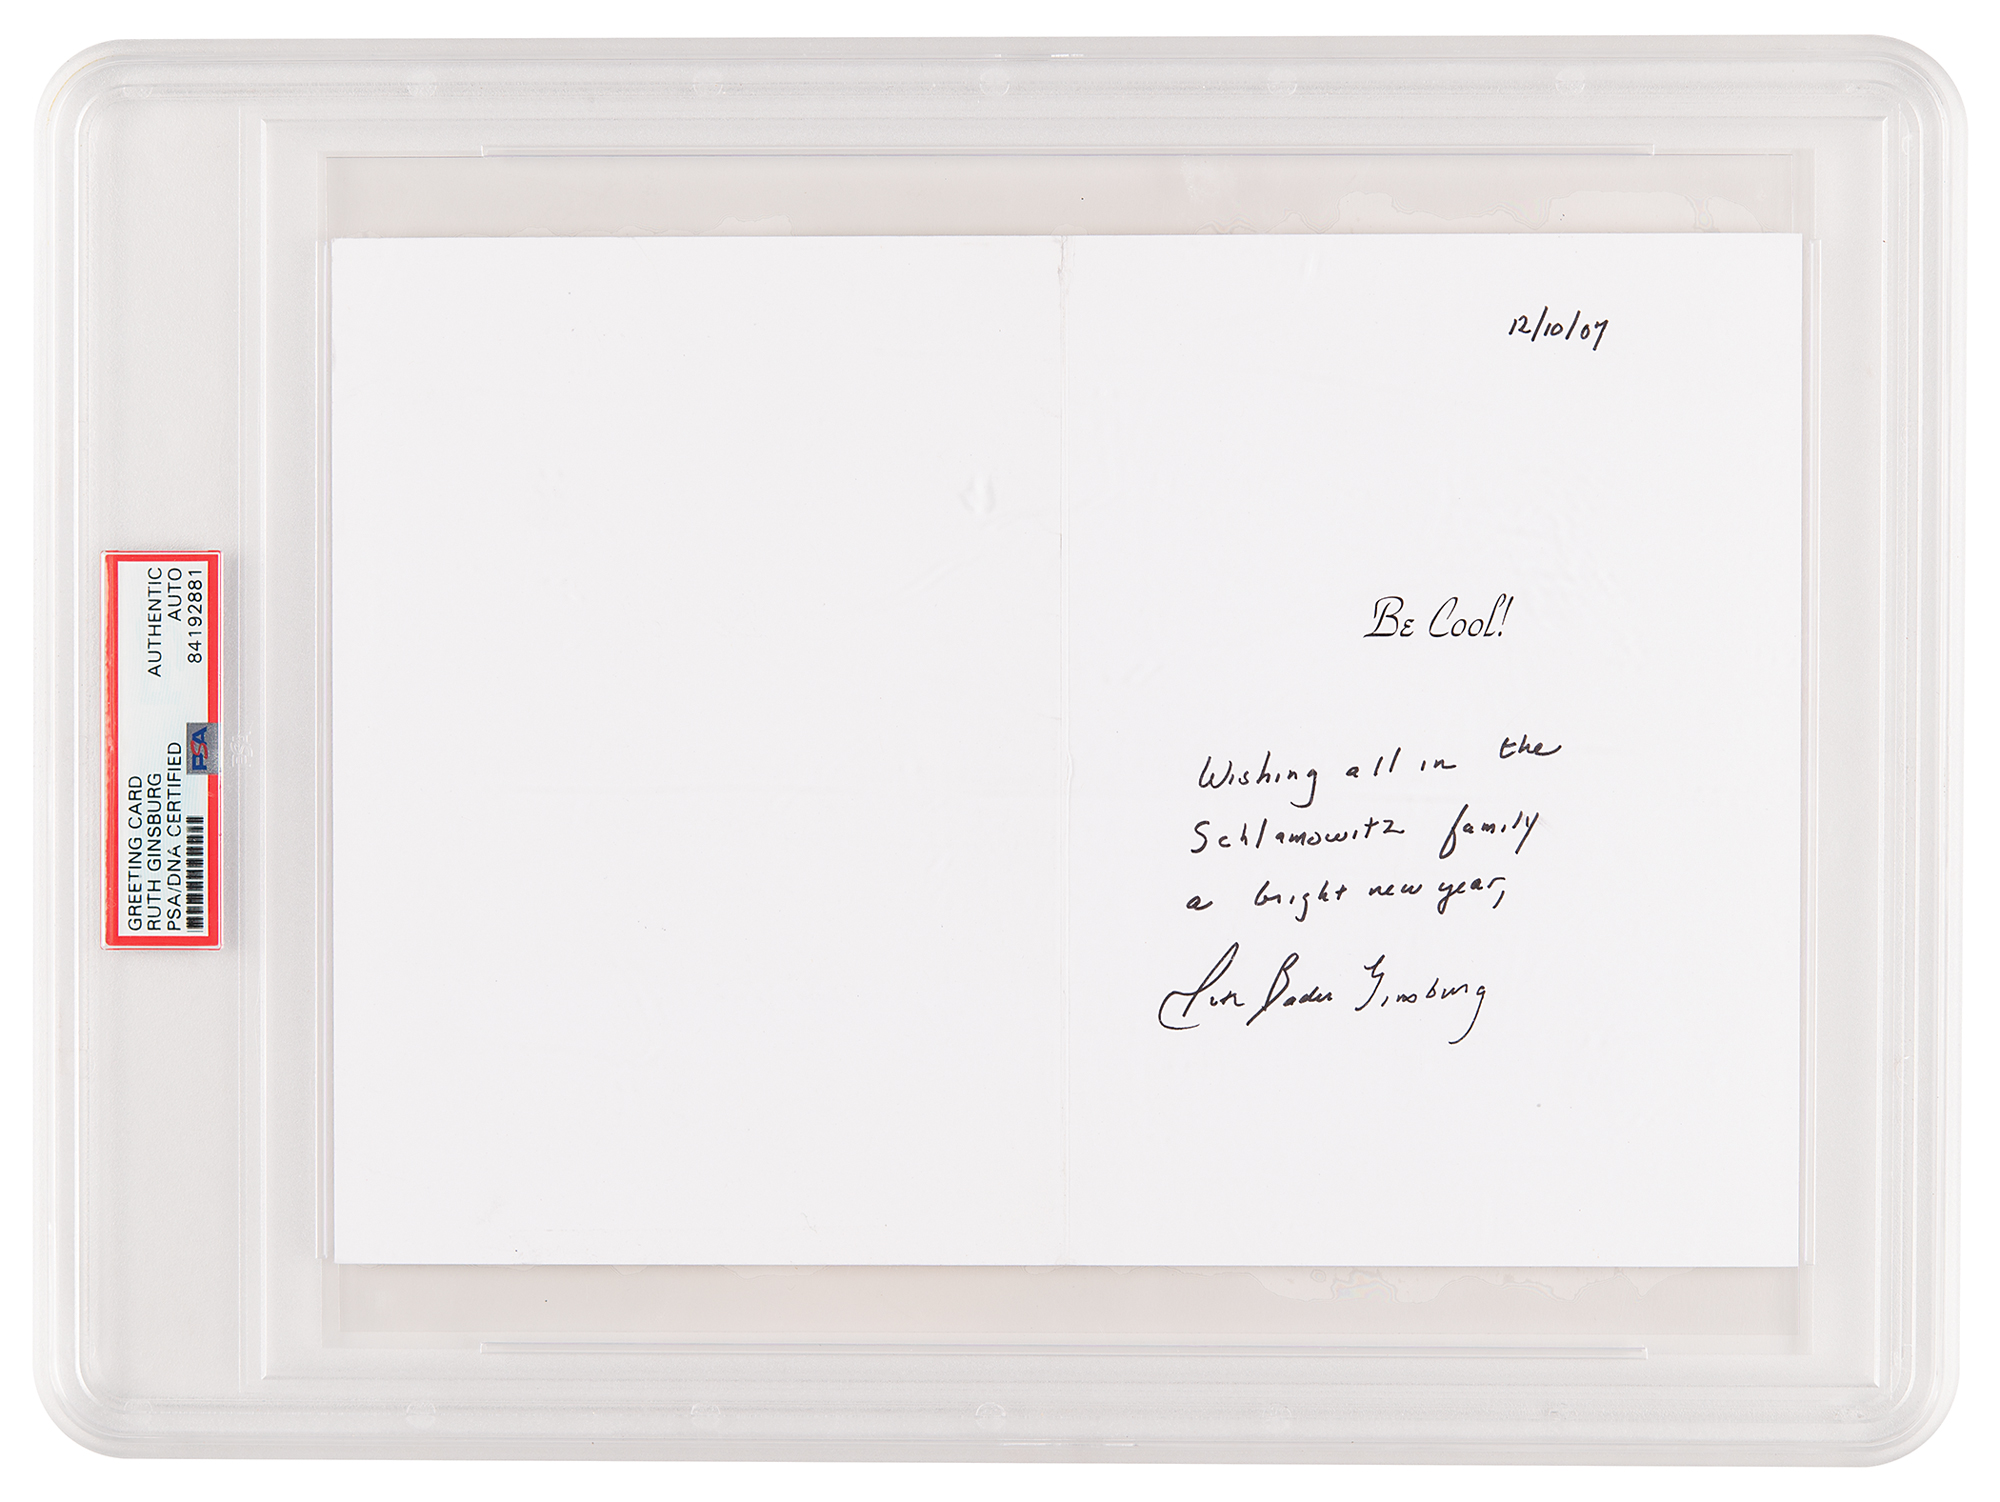 12/10/07
Be Cool!
Wishing all in the
Schlamowitz family
a bright new year,
Ruth Bader Ginsburg
GREETING CARD
RUTH GINSBURG
PSA/DNA CERTIFIED
AUTHENTIC
AUTO
84192881
PSA